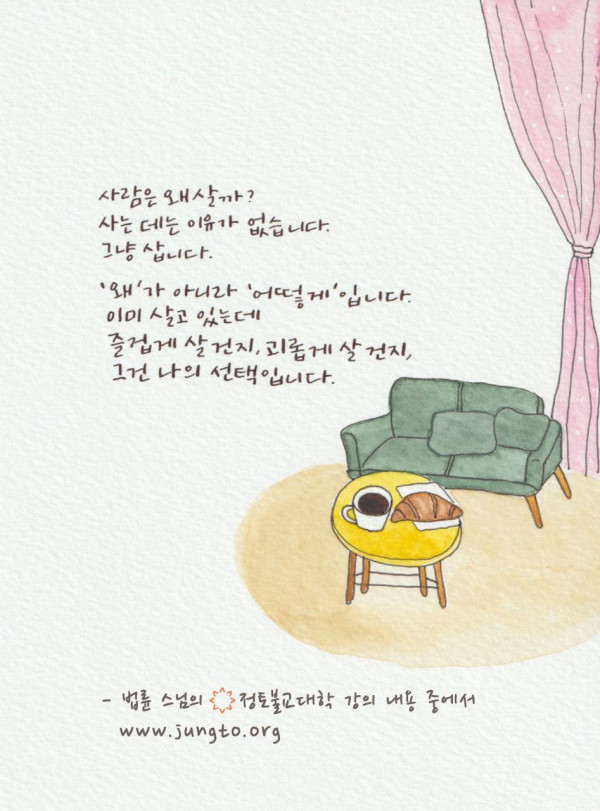 사람은 왜 살까?
사는 데는 이유가 없습니다.
그냥 삽니다.
‘왜’가 아니라 ‘어떻게’입니다.
이미 살고 있는데
즐겁게 살 건지, 괴롭게 살 건지,
그건 나의 선택입니다.
- 법륜 스님의 정토불교대학 강의 내용 중에서
www.jungto.org